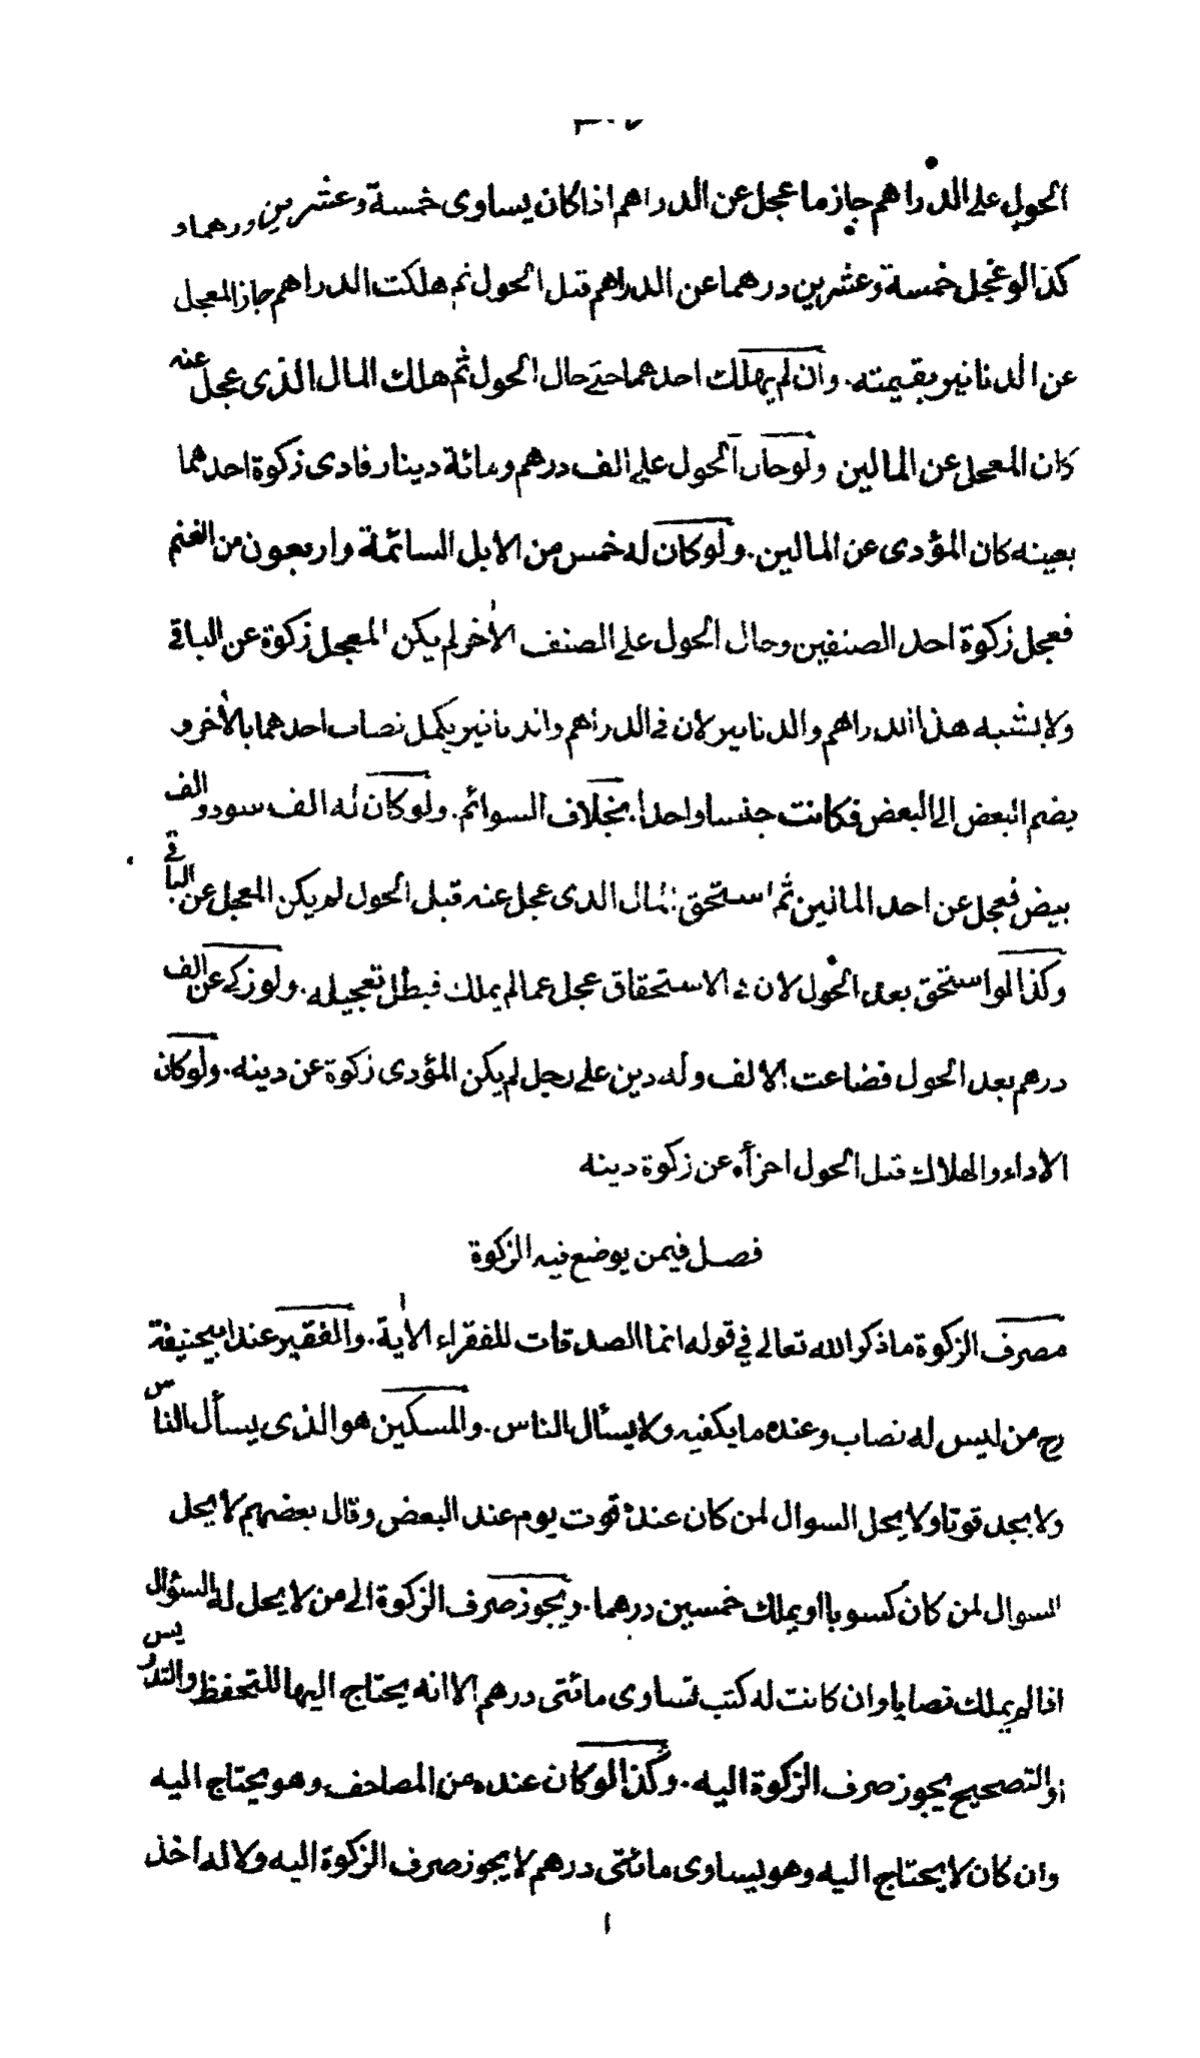 الحول على الدراهم جاز ما عجل عن الدراهم اذا كان يساوى خمسة وعشرين درهما و
كذا لو عجل خمسة وعشرين درهما عن الدراهم قبل الحول ثم هلكت الدراهم جاز المعجل
عن الدنانير بقيمته. وان لم يهلك احدهما حتى حال الحول ثم هلك المال الذى عجل عنه
كان المعجل عن المالين ولو حال الحول على الف درهم ومائة دينار فادى زكوة احدهما
بعينه كان المؤدى عن المالين. ولو كان له خمس من الابل السائمة واربعون من الغنم
فعجل زكوة احد الصنفين وحال الحول على الصنف الأخر لم يكن المعجل زكوة عن الباقى
ولا يشبه هذا الدراهم والدنانير لان فى الدراهم والدنانير يكمل نصاب احدهما بالأخر و
يضم البعض الى البعض فكانت جنسا واحدا. بخلاف السوائم. ولو كان له الف سود والف
بيض فعجل عن احد المالين ثم استحق المال الذى عجل عنه قبل الحول لم يكن المعجل عن الباقى
وكذا لو استحق بعد الحول لان فى الاستحقاق عجل عما لم يملك فبطل تعجيله. ولو زكى عن الف
درهم بعد الحول فضاعت الالف وله دين على رجل لم يكن المؤدى زكوة عن دينه. ولو كان
الاداء والهلاك قبل الحول اجزأه عن زكوة دينه
فصل فيمن يوضع فيه الزكوة
مصرف الزكوة ما ذكر الله تعالى فى قوله انما الصدقات للفقراء الأية. والفقير عند ابيحنيفة
رح من ليس له نصاب وعنده ما يكفيه ولا يسأل الناس. والمسكين هو الذى يسأل الناس
ولا يجد قوتا ولا يحل السوال لمن كان عنده قوت يوم عند البعض وقال بعضهم لا يحل
السوال لمن كان كسوبا او يملك خمسين درهما. ويجوز صرف الزكوة الى من لا يحل له السؤال
اذا لم يملك نصابا وان كانت له كتب تساوى مائتى درهم الا انه يحتاج اليها للتحفظ والتدريس
او التصحيح يجوز صرف الزكوة اليه. وكذا لو كان عنده من المصاحف وهو يحتاج اليه
وان كان لا يحتاج اليه وهو يساوى مائتى درهم لا يجوز صرف الزكوة اليه ولا له اخذ